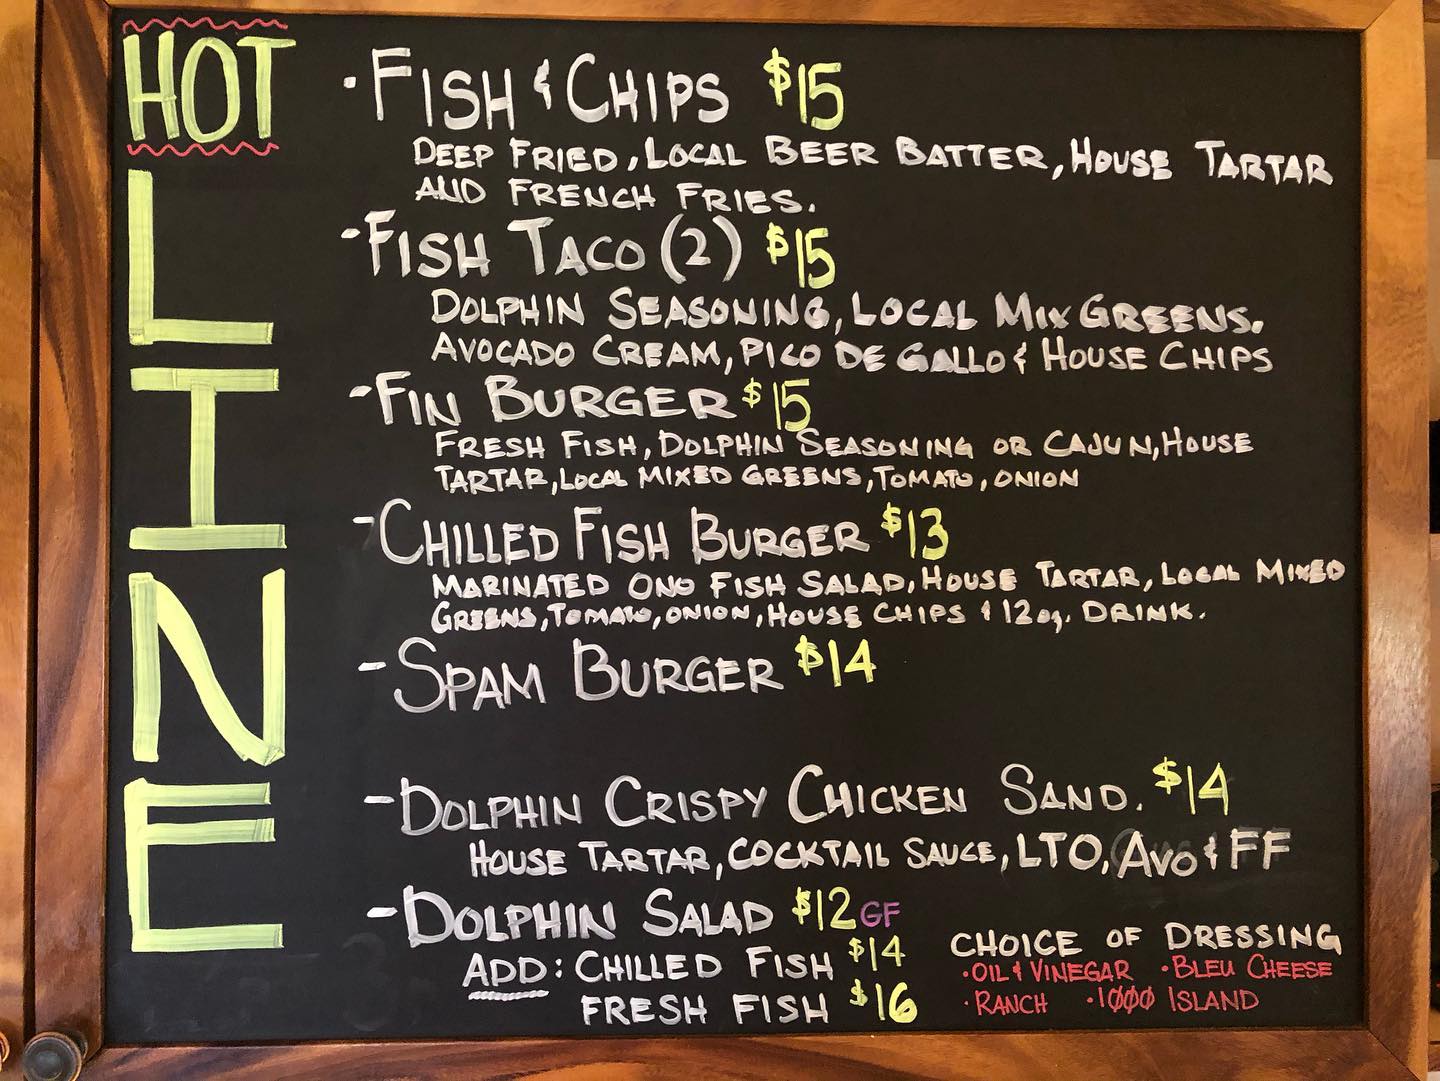 HOT
LINE
· FISH & CHIPS $15
DEEP FRIED, LOCAL BEER BATTER, HOUSE TARTAR
AND FRENCH FRIES.
- FISH TACO (2) $15
DOLPHIN SEASONING, LOCAL MIX GREENS.
AVOCADO CREAM, PICO DE GALLO & HOUSE CHIPS
- FIN BURGER $15
FRESH FISH, DOLPHIN SEASONING OR CAJUN, HOUSE
TARTAR, LOCAL MIXED GREENS, TOMATO, ONION
- CHILLED FISH BURGER $13
MARINATED ONO FISH SALAD, HOUSE TARTAR, LOCAL MIXED
GREENS, TOMATO, ONION, HOUSE CHIPS & 12oz. DRINK.
- SPAM BURGER $14
- DOLPHIN CRISPY CHICKEN SAND. $14
HOUSE TARTAR, COCKTAIL SAUCE, LTO, AVO & FF
- DOLPHIN SALAD $12 GF
ADD: CHILLED FISH $14
FRESH FISH $16
CHOICE OF DRESSING
· OIL & VINEGAR · BLEU CHEESE
· RANCH · 1000 ISLAND